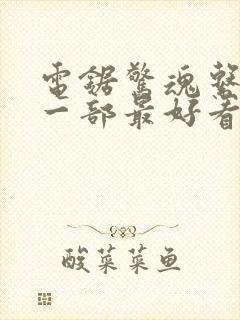 電鋸驚魂
一部最好看
酸菜菜鱼